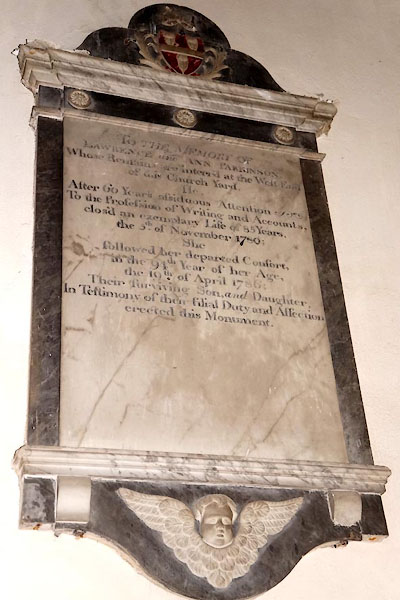 To THE MEMORY OF
LAWRENCE and ANN PARKINSON
Whose Remains are interred at the West End
of this Church Yard.
He
After 60 Years assiduous Attention
To the Profession of Writing and Accounts,
closd an exemplary Life of 85 Years,
the 5th of November 1780:
She
followed her departed Consort,
in the 91st Year of her Age,
the 19th of April 1786:
Their surviving Son, and Daughter,
In Testimony of their filial Duty and Affection
erected this Monument.